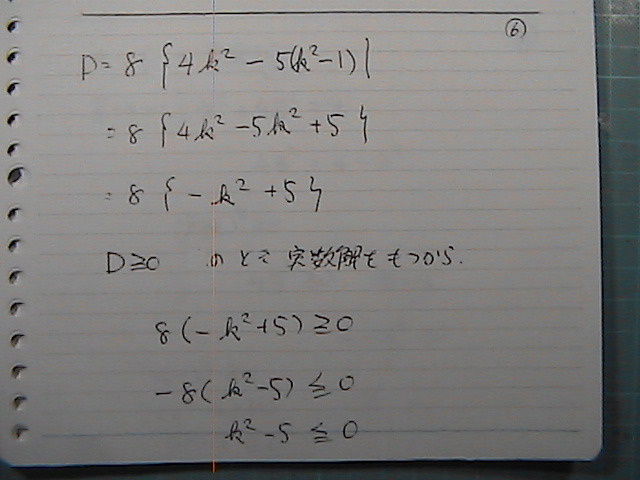 ⑥
D = 8 { 4k² - 5(k²-1) }
= 8 { 4k² - 5k² + 5 }
= 8 { - k² + 5 }
D≧0 のとき 実数解をもつから.
8 ( - k² + 5 ) ≧ 0
-8 ( k² - 5 ) ≦ 0
k² - 5 ≦ 0